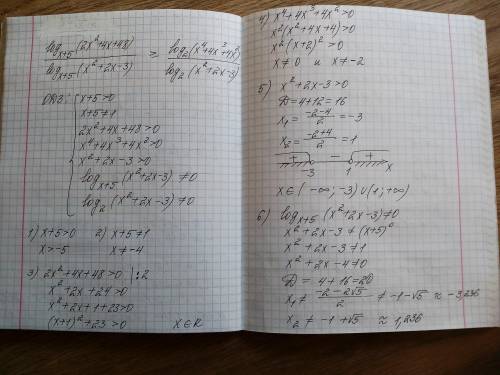 log_{x+5}(2x²+4x+48) / log_{x+5}(x²+2x-3) ≥ log₂(x⁴+4x³+4x²) / log₂(x²+2x-3)
ОДЗ: x+5>0
x+5≠1
2x²+4x+48>0
x⁴+4x³+4x²>0
x²+2x-3>0
log_{x+5}(x²+2x-3)≠0
log₂(x²+2x-3)≠0
1) x+5>0 2) x+5≠1
x>-5 x≠-4
3) 2x²+4x+48>0 |:2
x²+2x+24>0
x²+2x+1+23>0
(x+1)²+23>0 x∈R
4) x⁴+4x³+4x²>0
x²(x²+4x+4)>0
x²(x+2)²>0
x≠0 и x≠-2
5) x²+2x-3>0
D=4+12=16
x₁=(-2-4)/2=-3
x₂=(-2+4)/2=1
+ - +
-3 1 x
x∈(-∞;-3)∪(1;+∞)
6) log_{x+5}(x²+2x-3)≠0
x²+2x-3≠(x+5)⁰
x²+2x-3≠1
x²+2x-4≠0
D=4+16=20
x₁≠(-2-2√5)/2≠-1-√5≈-3,236
x₂≠-1+√5≈1,236